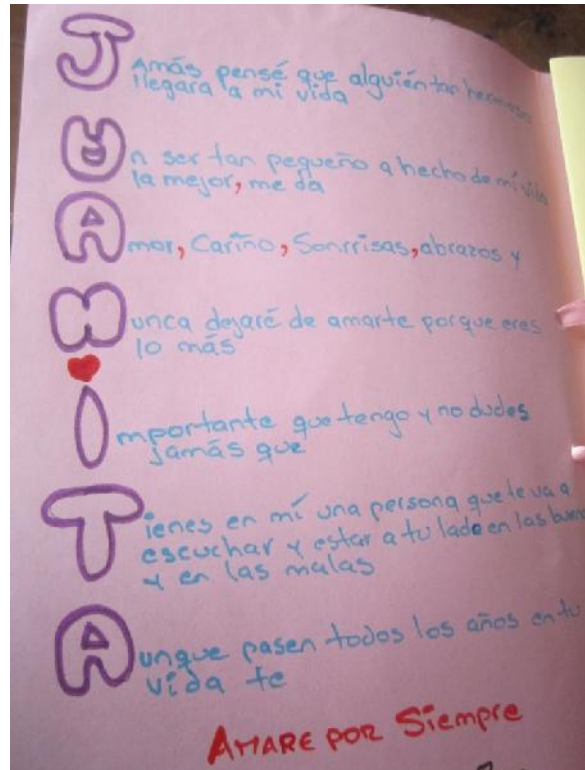 Jamás pensé que alguién tan hermoso
llegara a mi vida
Un ser tan pequeño a hecho de mi vida
la mejor, me da
Amor, Cariño, Sonrrisas, abrazos y
Nunca dejaré de amarte porque eres
lo más
Importante que tengo y no dudes
jamás que
Tienes en mí una persona que te va a
escuchar y estar a tu lado en las buenas
y en las malas
Aunque pasen todos los años en tu
vida te
AMARE POR Siempre